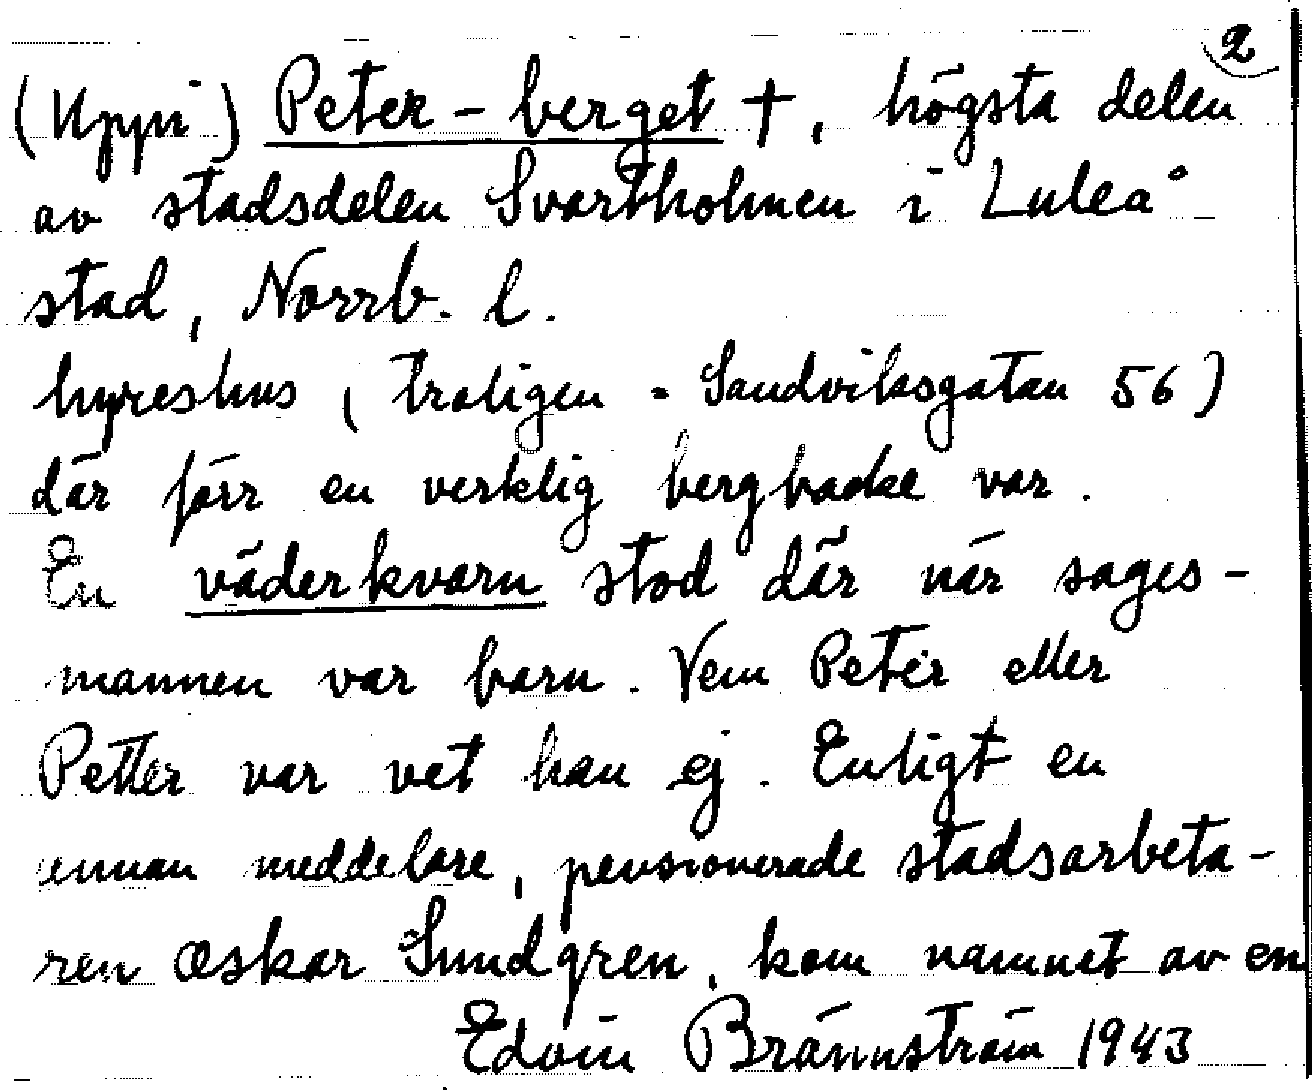 2
(Uppi) Peter-berget †, högsta delen
av stadsdelen Svartholmen i Luleå
stad, Norrb. l.
hyreshus (troligen = Sandviksgatan 56)
där förr en verklig bergbacke var.
En väderkvarn stod där när sages-
mannen var barn. Vem Peter eller
Petter var vet han ej. Enligt en
annan meddelare, pensionerade stadsarbeta-
ren Oskar Sundgren, kom namnet av en
Edvin Brännström 1943